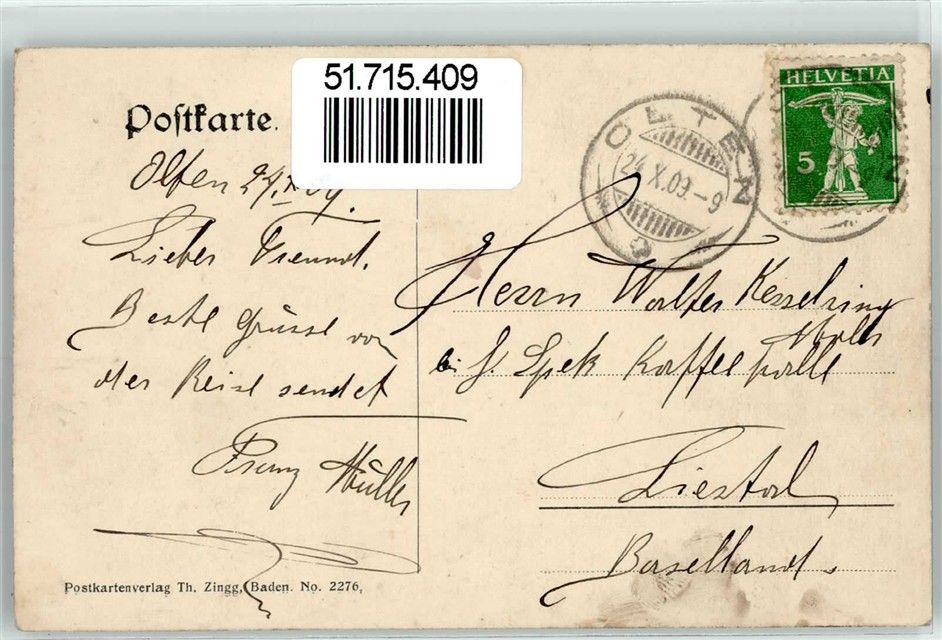 51.715.409
Postkarte.
HELVETIA
5
OLTEN
24.X.09.-9
Olten 24.X.09.
Lieber Freund.
Beste Grüsse von
der Reise sendet
Franz Müller
Herrn Walter Kesselring
bei J. Spek Kaffeehalle
Liestal
Baselland.
Postkartenverlag Th. Zingg, Baden. No. 2276.